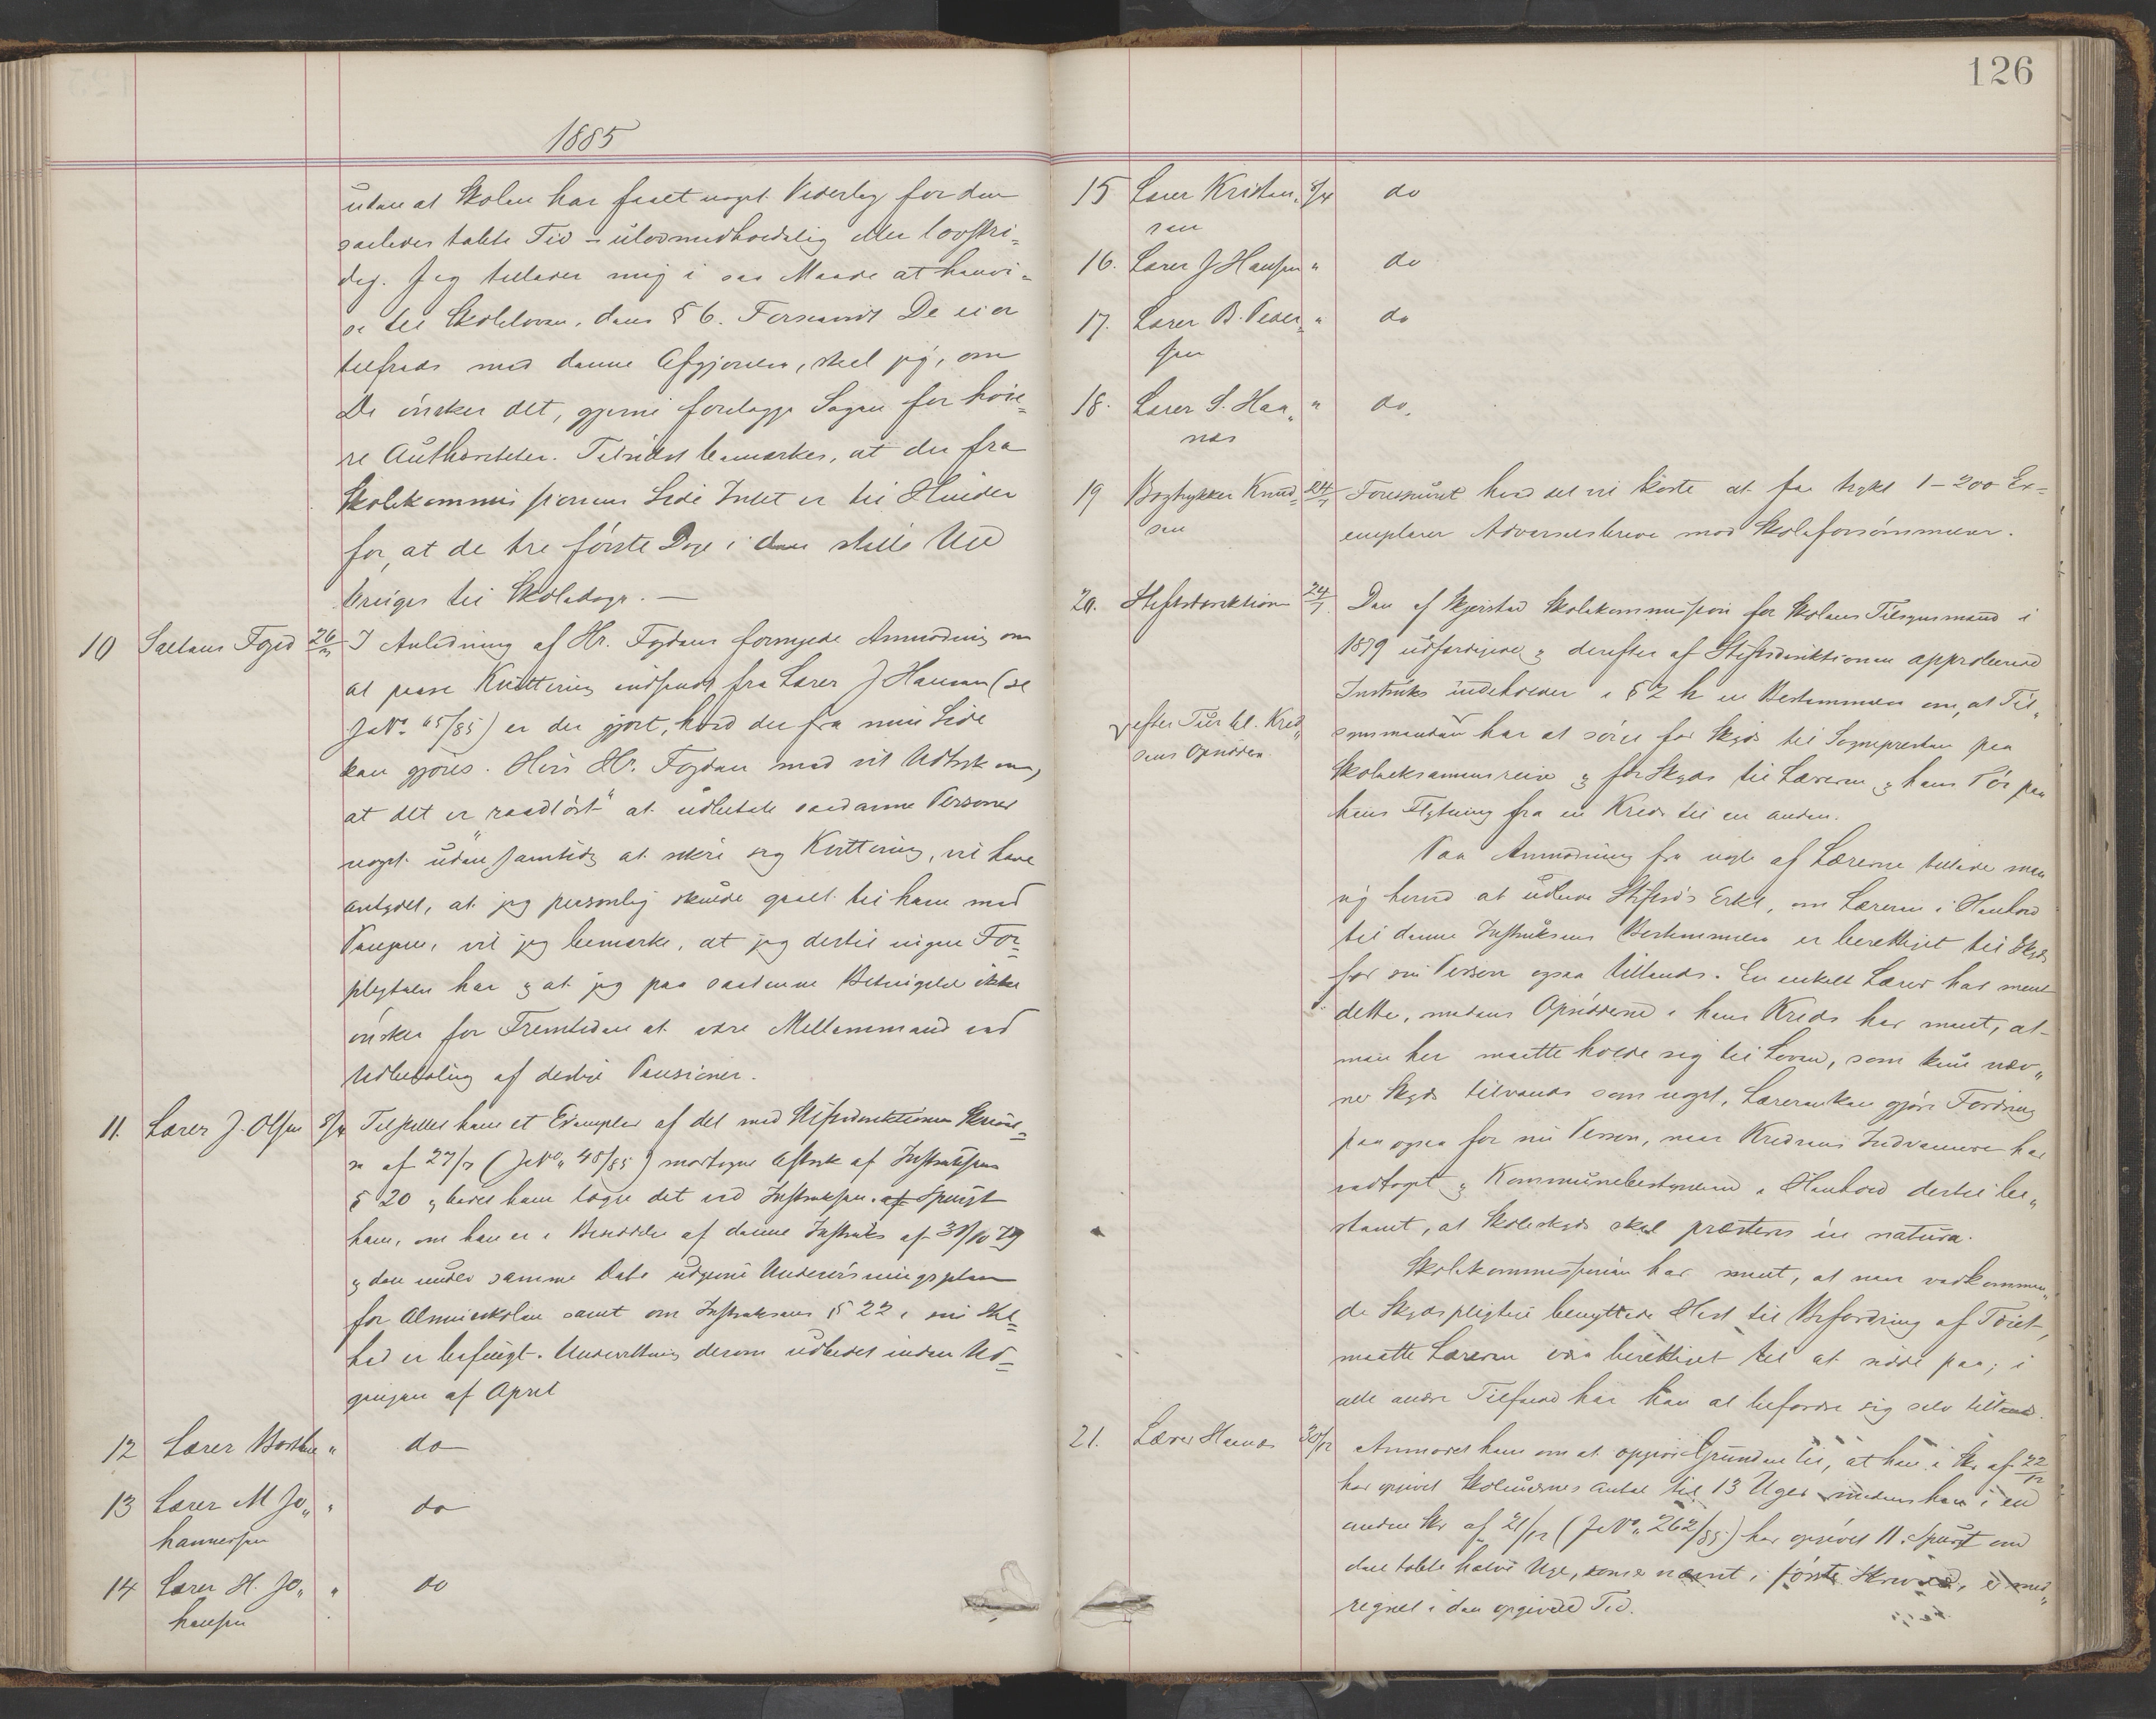 1885
uden at Skolen har faaet noget Vederlag for den
saaledes tabte Tid – ulovmedholdelig eller lovstri-
dig. Jeg tillader mig i saa Maade at henvi-
se til Skoleloven, dens § 6. Forsaavidt De ei er
tilfreds med denne Afgjørelse, skal jeg, om
De ønsker det, gjerne forelægge Sagen for høie-
re Autoriteter. Tilsidst bemærkes, at der fra
Skolekommissionens Side Intet er til Hinder
for, at de tre første Dage i den stille Uge
bruges til Skoledage. —
10 Saltens Foged 26/3 I Anledning af Hr. Fogdens fornyede Anmodning om
at passe Kvittering indsendt fra Lærer J Hansen (se
JoNo 65/85) er der gjort, hvad der fra min Side
kan gjøres. Hvis Hr. Fogden med sit Udtryk om,
at det er „raadløst" at udbetale saadanne Personer
noget uden samtidig at sikre sig Kvittering, vil have
antydet, at jeg personlig skulde gaaet til ham med
Pengene, vil jeg bemærke, at jeg dertil ingen For-
pligtelse har og at jeg paa saadanne Betingelser ikke
ønsker for Fremtiden at være Mellemmand ved
Udbetaling af deslige Pensioner.
11. Lærer J. Olsen 8/4 Tilstilles ham et Exemplar af det med Stiftsdirektionens Skrivel-
se af 27/3 (JoNo 48/85) modtagne Aftryk af Instruksens
§ 20 og bedes ham lægge det ved Instruksen. af Spurgt
ham, om han er i Besiddelse af denne Instruks af 31/10 79
og den under samme Dato udgivne Undervisningsplan
for Almueskolen samt om Instruksens § 22 i sin Hel-
hed er befulgt. Underretning derom udbedes inden Ud-
gangen af April
12 Lærer " do
13 Lærer M Jo" " do
hannessen
14 Lærer H. Jo" " do
hansen
126
15 Lærer Kristen" 8/4 do
sen
16. Lærer J Hansen " do
17. Lærer B. Peder- " do
sen
18. Lærer S. Haa" " do.
næs
19 Bogtrykker Knud- 24/7 Forespurgt hvad det vil koste at faa trykt 1–200 Ex-
sen emplarer Advarselsbreve mod Skoleforsømmelser.
20. Stiftsdirektionen 24/7. Den af Skjerstad Skolekommission for Skolens Tilsynsmænd i
1879 udfærdigede og derefter af Stiftsdirektionen approberede
Instruks indeholder i § 2 h en Bestemmelse om, at Til"
efter Tur bl. Kred" synsmanden har at sørge for Skyds til Sognepresten paa
sens Opsiddere Skoleeksamensreise og for Skyds til Læreren og hans Tøi paa
hans Flytning fra en Kreds til en anden.
Paa Anmodning fra nogle af Lærerne tillader man
sig herved at udbede Stiftsd's Erkl, om Læreren i Henhold
til denne Instruksens Bestemmelse er berettiget til Skyds
for sin Person ogsaa tillands. En enkelt Lærer har ment
dette, medens Opsidderne i hans Kreds har ment, at
man her maatte holde sig til Loven, som kun næv"
ner Skyds tilvands som noget, Læreren kan gjøre Fordring
paa ogsaa for sin Person, naar Kredsens Indvaanere har
vedtaget og Kommunebestyrelsen i Henhold dertil be"
stemt, at Skoleskyds skal præsteres in natura.
Skolekommissionen har ment, at naar vedkommen"
de Skydspligtige benyttede Hest til Befordring af Tøiet,
maatte Læreren være berettiget til at sidde paa; i
alle andre Tilfælde har han at befordre sig selv tillands.
21. Lærer Haanæs 30/12 Anmodet ham om at opgive Grunden til, at han i Skr. af 22/12
har opgivet Skoleugernes Antal til 13 Uger medens han i en
anden Skr af 21/12 (JoNo 262/85) har opgivet 11. Spurgt om
den tabte halve Uge, som er nævnt i første Skrivelse, er med"
regnet i den opgivne Tid.